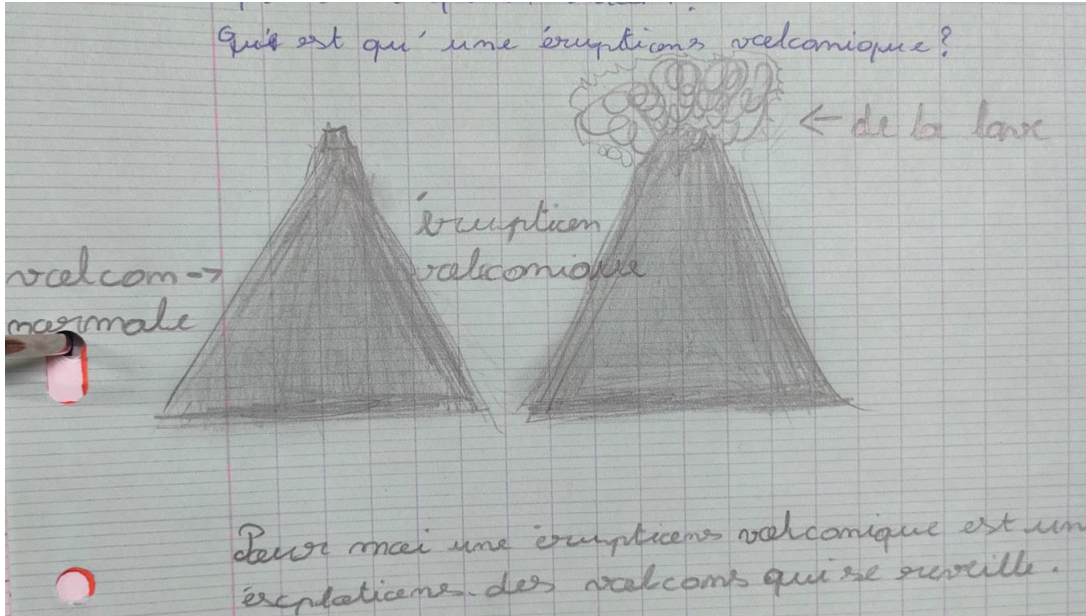 Qu'est qu'une éruptions volconique?
← de la lave
éruption
volconique
volcom →
normale
Pour moi une éruptions volconique est un
ésplotions des volcoms qui se reveille.